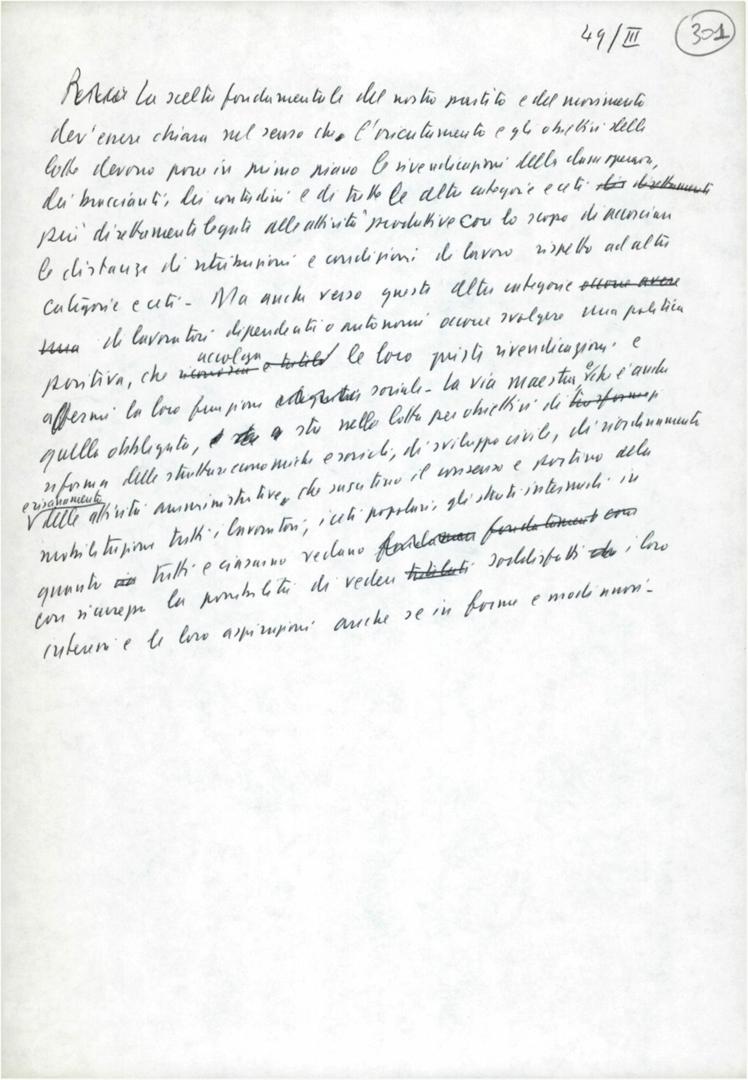 49/III 301
La scelta fondamentale del nostro partito e del movimento
dev'essere chiara nel senso che l'orientamento e gli obiettivi delle
lotte devono porre in primo piano le rivendicazioni della classe operaia,
dei braccianti, dei contadini e di tutte le altre categorie e ceti direttamente
più direttamente legati alle attività produttive con lo scopo di accorciare
le distanze di retribuzioni e condizioni di lavoro rispetto ad altre
categorie e ceti - Ma anche verso queste altre categorie occorre avere
una di lavoratori dipendenti o autonomi occorre svolgere una politica
accolga
positiva, che riconosca e tuteli le loro giuste rivendicazioni e
affermi la loro funzione sociale - La via maestra, che è anche
quella obbligata, sta nella lotta per obiettivi di
riforma delle strutture economiche e sociali, di sviluppo civile, di riordinamento
e risanamento
delle attività amministrative, che suscitino il consenso e portino alla
mobilitazione tutti i lavoratori, i ceti popolari, gli strati intermedi in
quanto tutti e ciascuno vedano fondatament con
con sicurezza la possibilità di vedere tutelati soddisfatti i loro
interessi e le loro aspirazioni anche se in forme e modi nuovi -